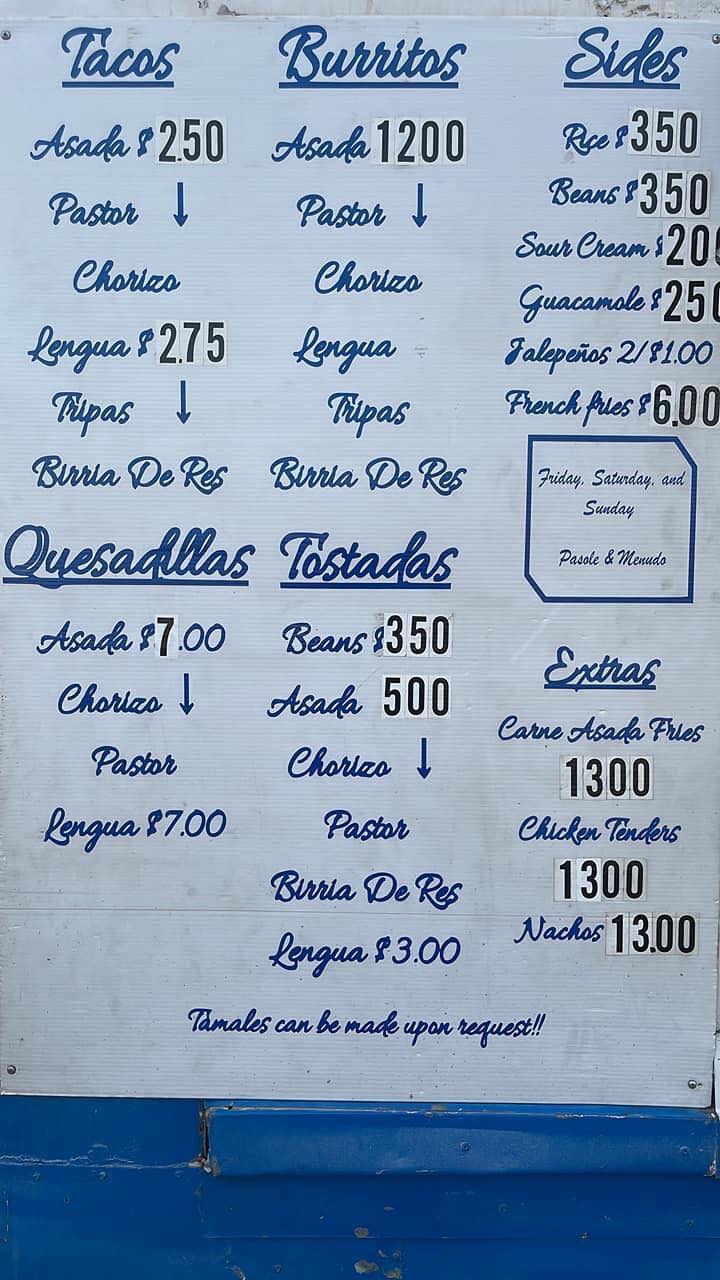 Tacos
Asada $ 2.50
Pastor ↓
Chorizo
Lengua $ 2.75
Tripas ↓
Birria De Res
Burritos
Asada 1200
Pastor ↓
Chorizo
Lengua
Tripas
Birria De Res
Sides
Rice $ 350
Beans $ 350
Sour Cream $ 200
Guacamole $ 250
Jalepeños 2/$1.00
French fries $ 6.00
Friday, Saturday, and
Sunday
Pasole & Menudo
Quesadillas
Asada $7.00
Chorizo ↓
Pastor
Lengua $7.00
Tostadas
Beans $ 350
Asada 500
Chorizo ↓
Pastor
Birria De Res
Lengua $3.00
Extras
Carne Asada Fries
1300
Chicken Tenders
1300
Nachos 13.00
Tamales can be made upon request!!